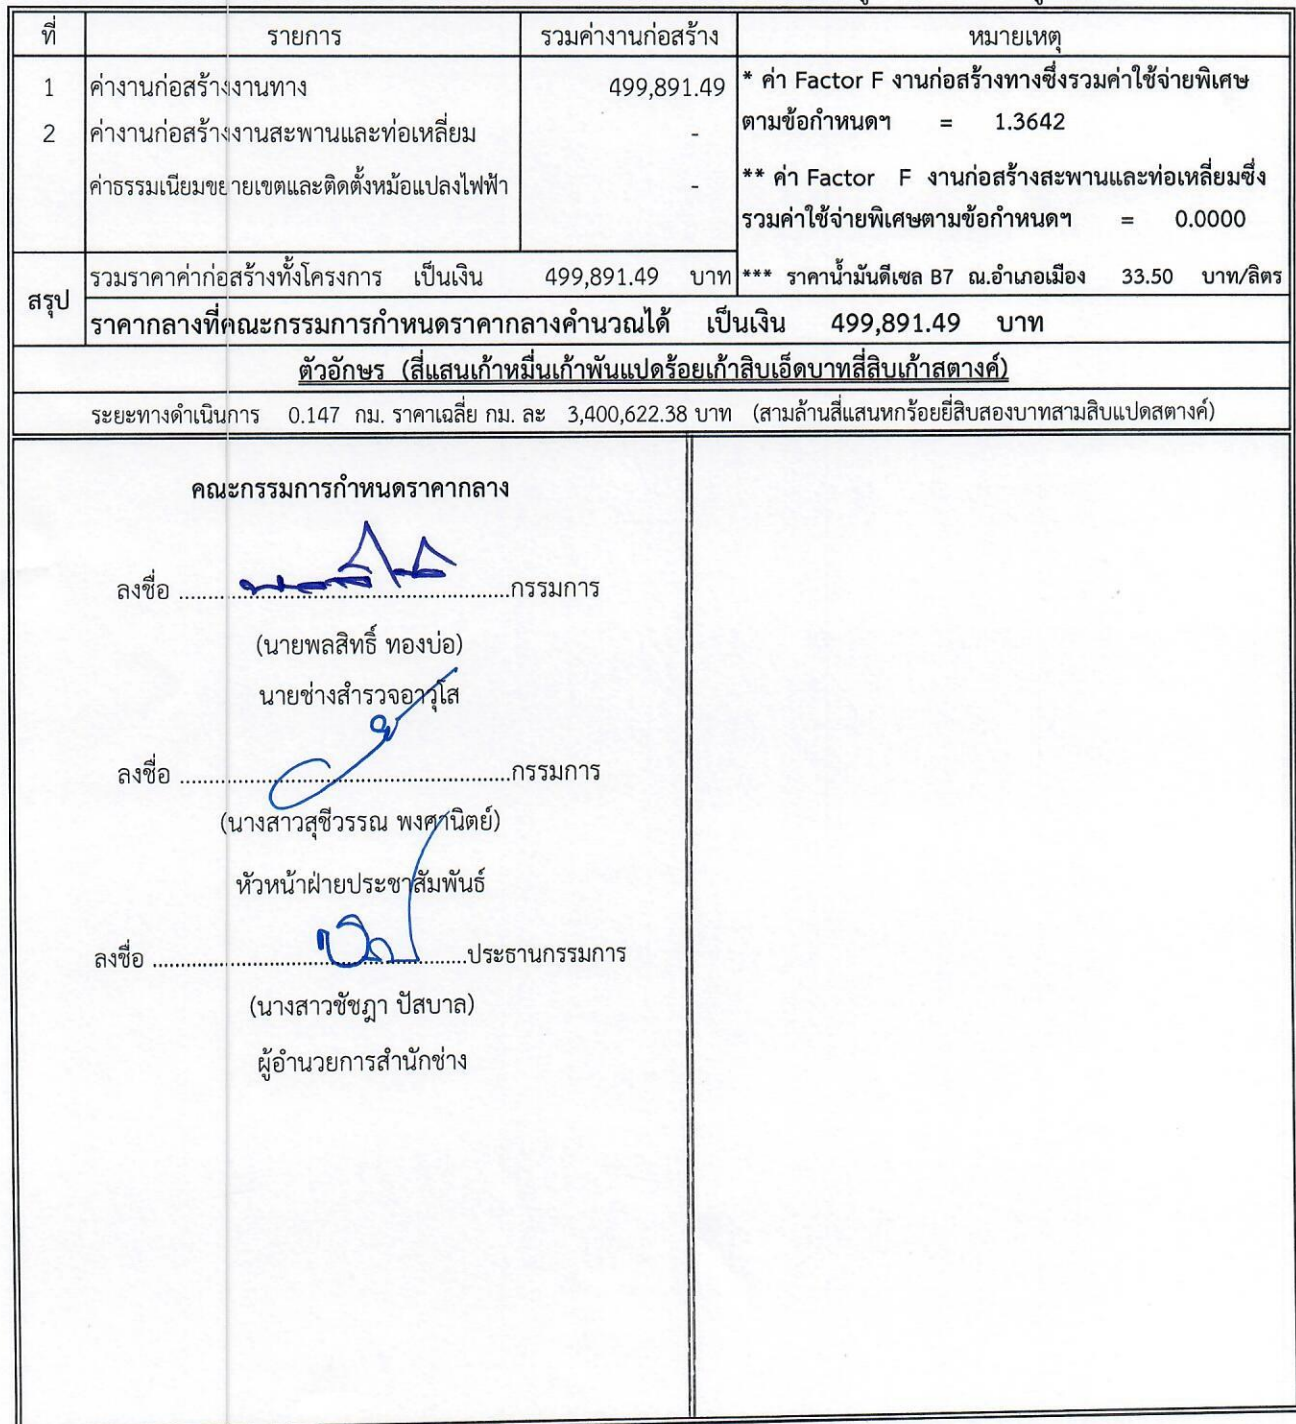 ที่ รายการ รวมค่างานก่อสร้าง หมายเหตุ
1 ค่างานก่อสร้างงานทาง 499,891.49 * ค่า Factor F งานก่อสร้างทางซึ่งรวมค่าใช้จ่ายพิเศษ
2 ค่างานก่อสร้างงานสะพานและท่อเหลี่ยม - ตามข้อกำหนดฯ = 1.3642
ค่าธรรมเนียมขยายเขตและติดตั้งหม้อแปลงไฟฟ้า - ** ค่า Factor F งานก่อสร้างสะพานและท่อเหลี่ยมซึ่ง
รวมค่าใช้จ่ายพิเศษตามข้อกำหนดฯ = 0.0000
สรุป รวมราคาค่าก่อสร้างทั้งโครงการ เป็นเงิน 499,891.49 บาท *** ราคาน้ำมันดีเซล B7 ณ.อำเภอเมือง 33.50 บาท/ลิตร
ราคากลางที่คณะกรรมการกำหนดราคากลางคำนวณได้ เป็นเงิน 499,891.49 บาท
ตัวอักษร (สี่แสนเก้าหมื่นเก้าพันแปดร้อยเก้าสิบเอ็ดบาทสี่สิบเก้าสตางค์)
ระยะทางดำเนินการ 0.147 กม. ราคาเฉลี่ย กม. ละ 3,400,622.38 บาท (สามล้านสี่แสนหกร้อยยี่สิบสองบาทสามสิบแปดสตางค์)
คณะกรรมการกำหนดราคากลาง
ลงชื่อ ........................................................กรรมการ
(นายพลสิทธิ์ ทองบ่อ)
นายช่างสำรวจอาวุโส
ลงชื่อ ........................................................กรรมการ
(นางสาวสุชีวรรณ พงศานิตย์)
หัวหน้าฝ่ายประชาสัมพันธ์
ลงชื่อ .....................................................ประธานกรรมการ
(นางสาวชัชฎา ปัสบาล)
ผู้อำนวยการสำนักช่าง